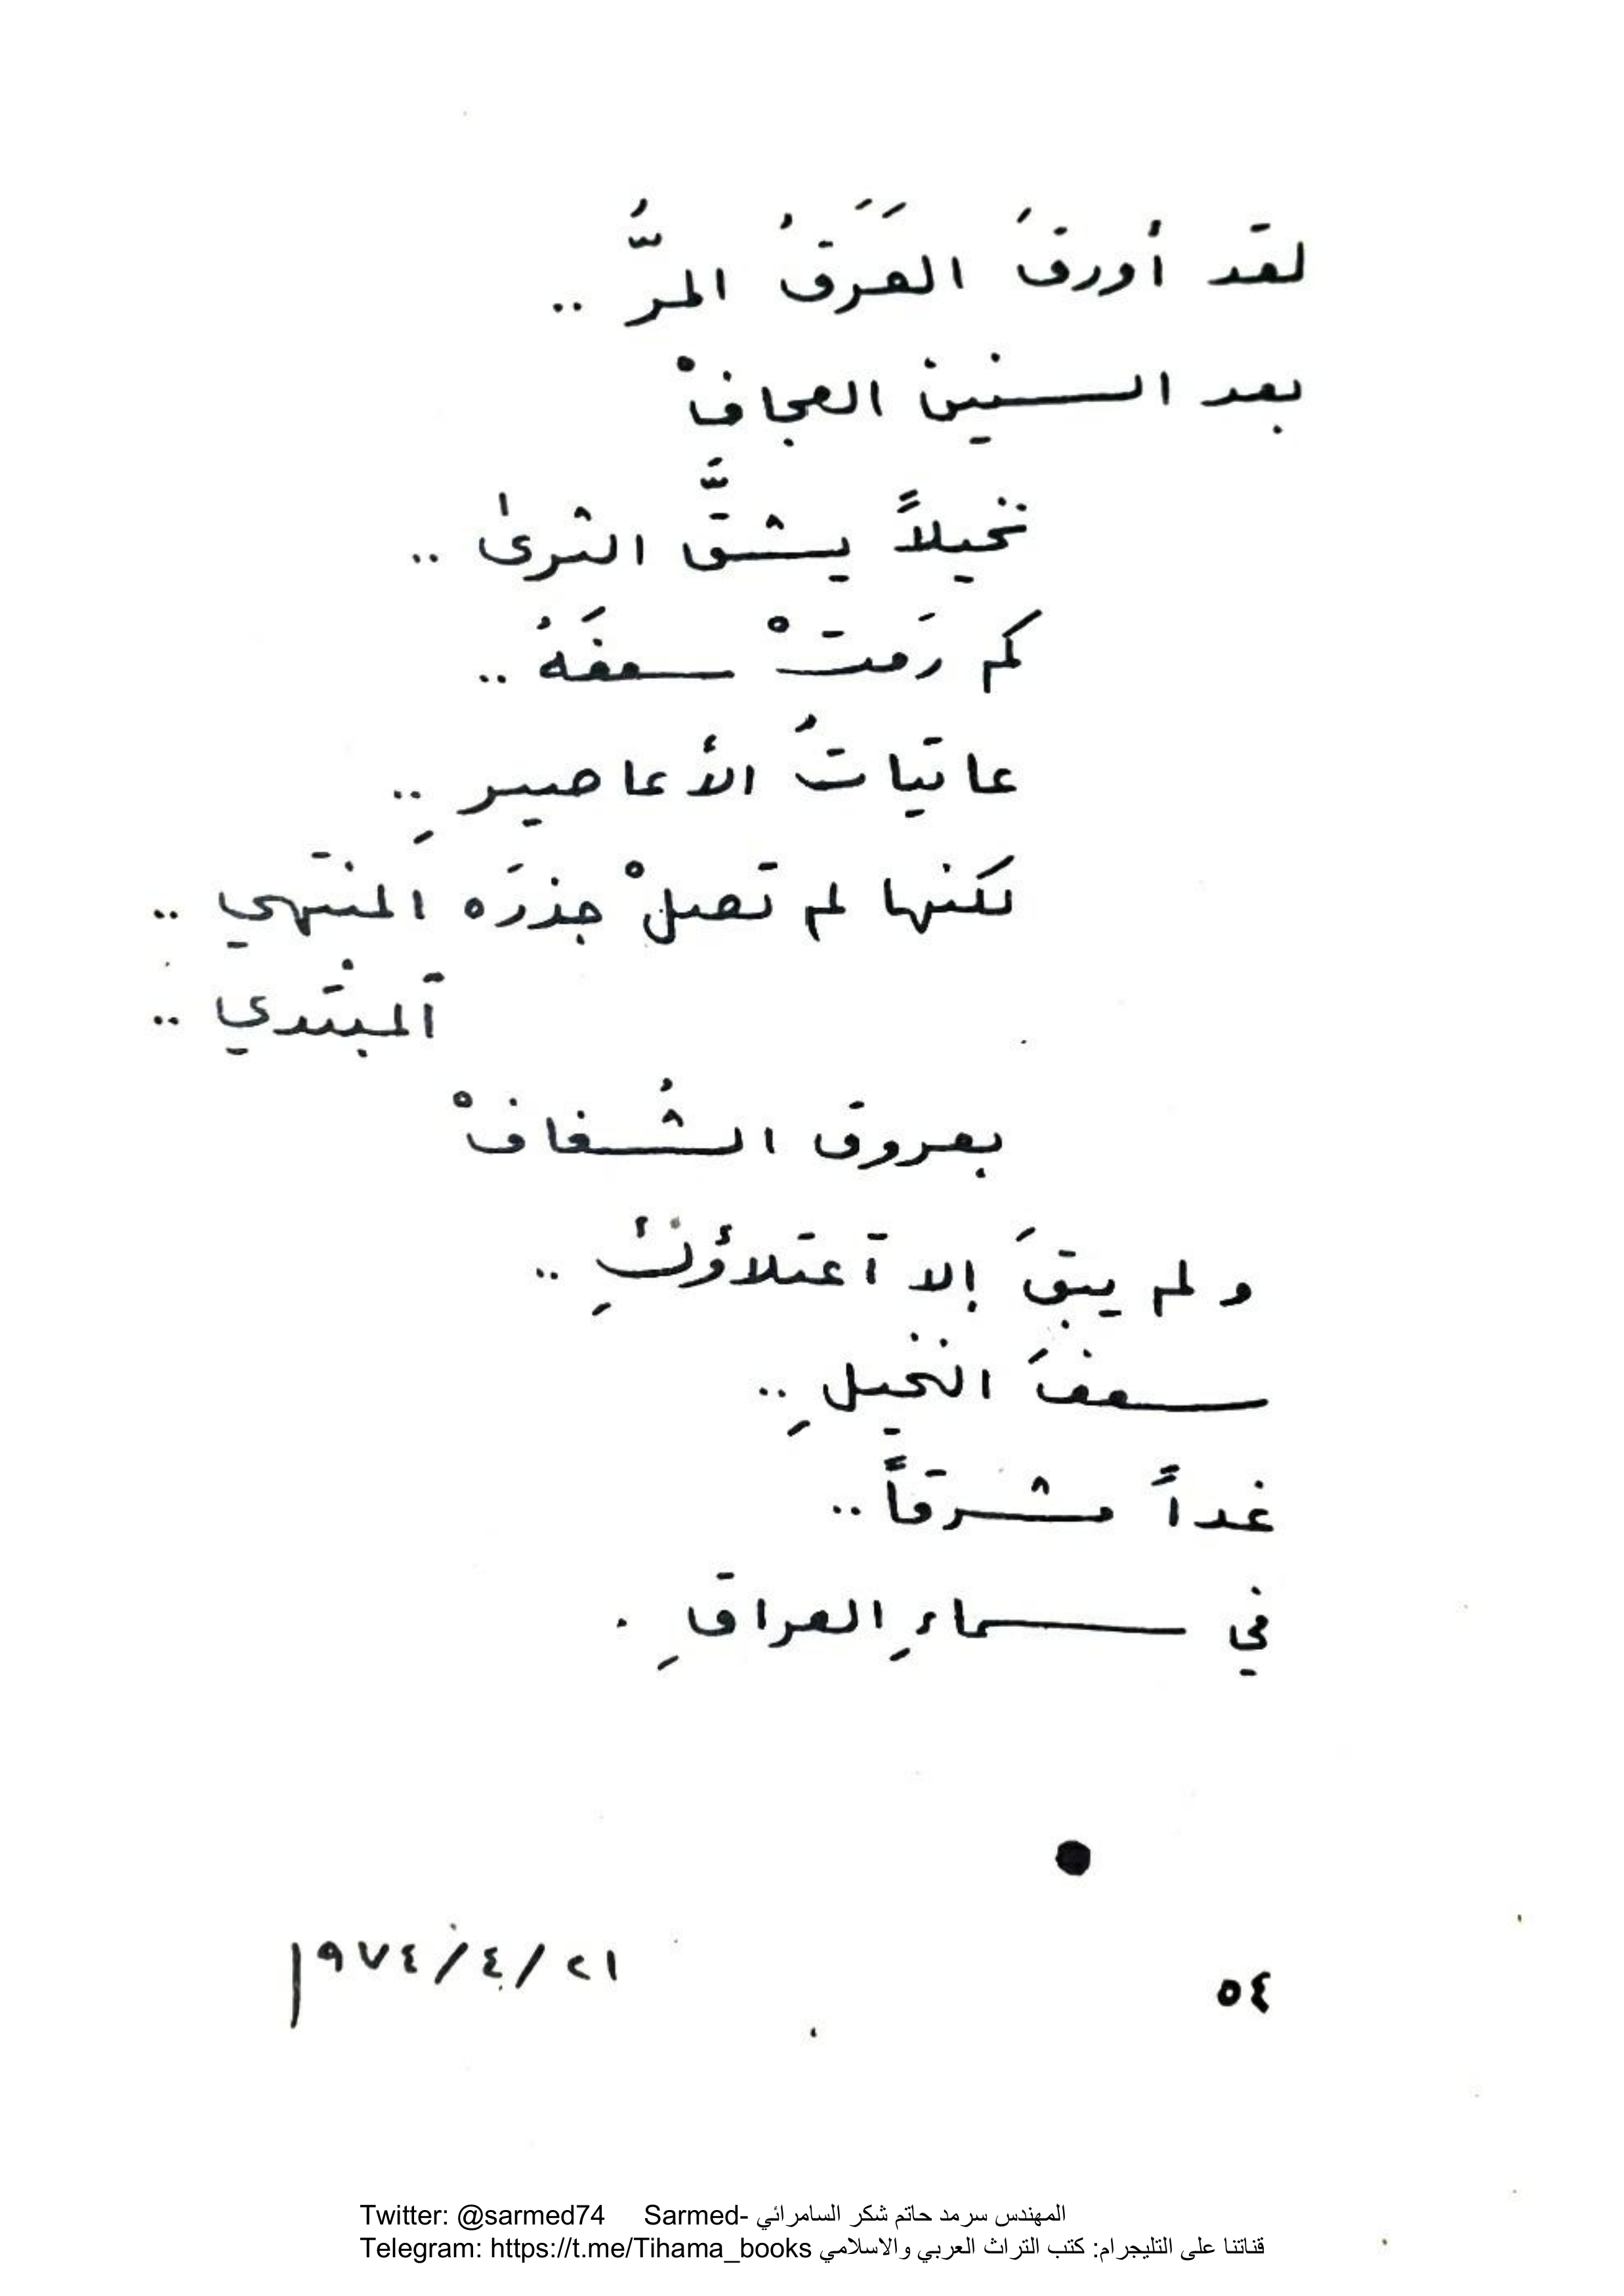 لقد أورقَ العَرَقُ المرُّ ..
بعد السنين العجافْ
نخيلاً يشقَّ الثرىٰ ..
كم رَمتْ سعفَهُ ..
عاتياتُ الأعاصيرِ ..
لكنها لم تصلْ جذرَه المنتهي ..
آلمبْتدي ..
بعروق الشُغافْ
ولم يبقَ إلا آعتلاؤكِ ..
سعفَ النخيلِ ..
غداً مشرقاً ..
في سماءِ العراقِ .
●
٢١/٤/١٩٧٤
٥٤
Twitter: @sarmed74 Sarmed- المهندس سرمد حاتم شكر السامرائي
Telegram: https://t.me/Tihama_books قناتنا على التليجرام: كتب التراث العربي والاسلامي